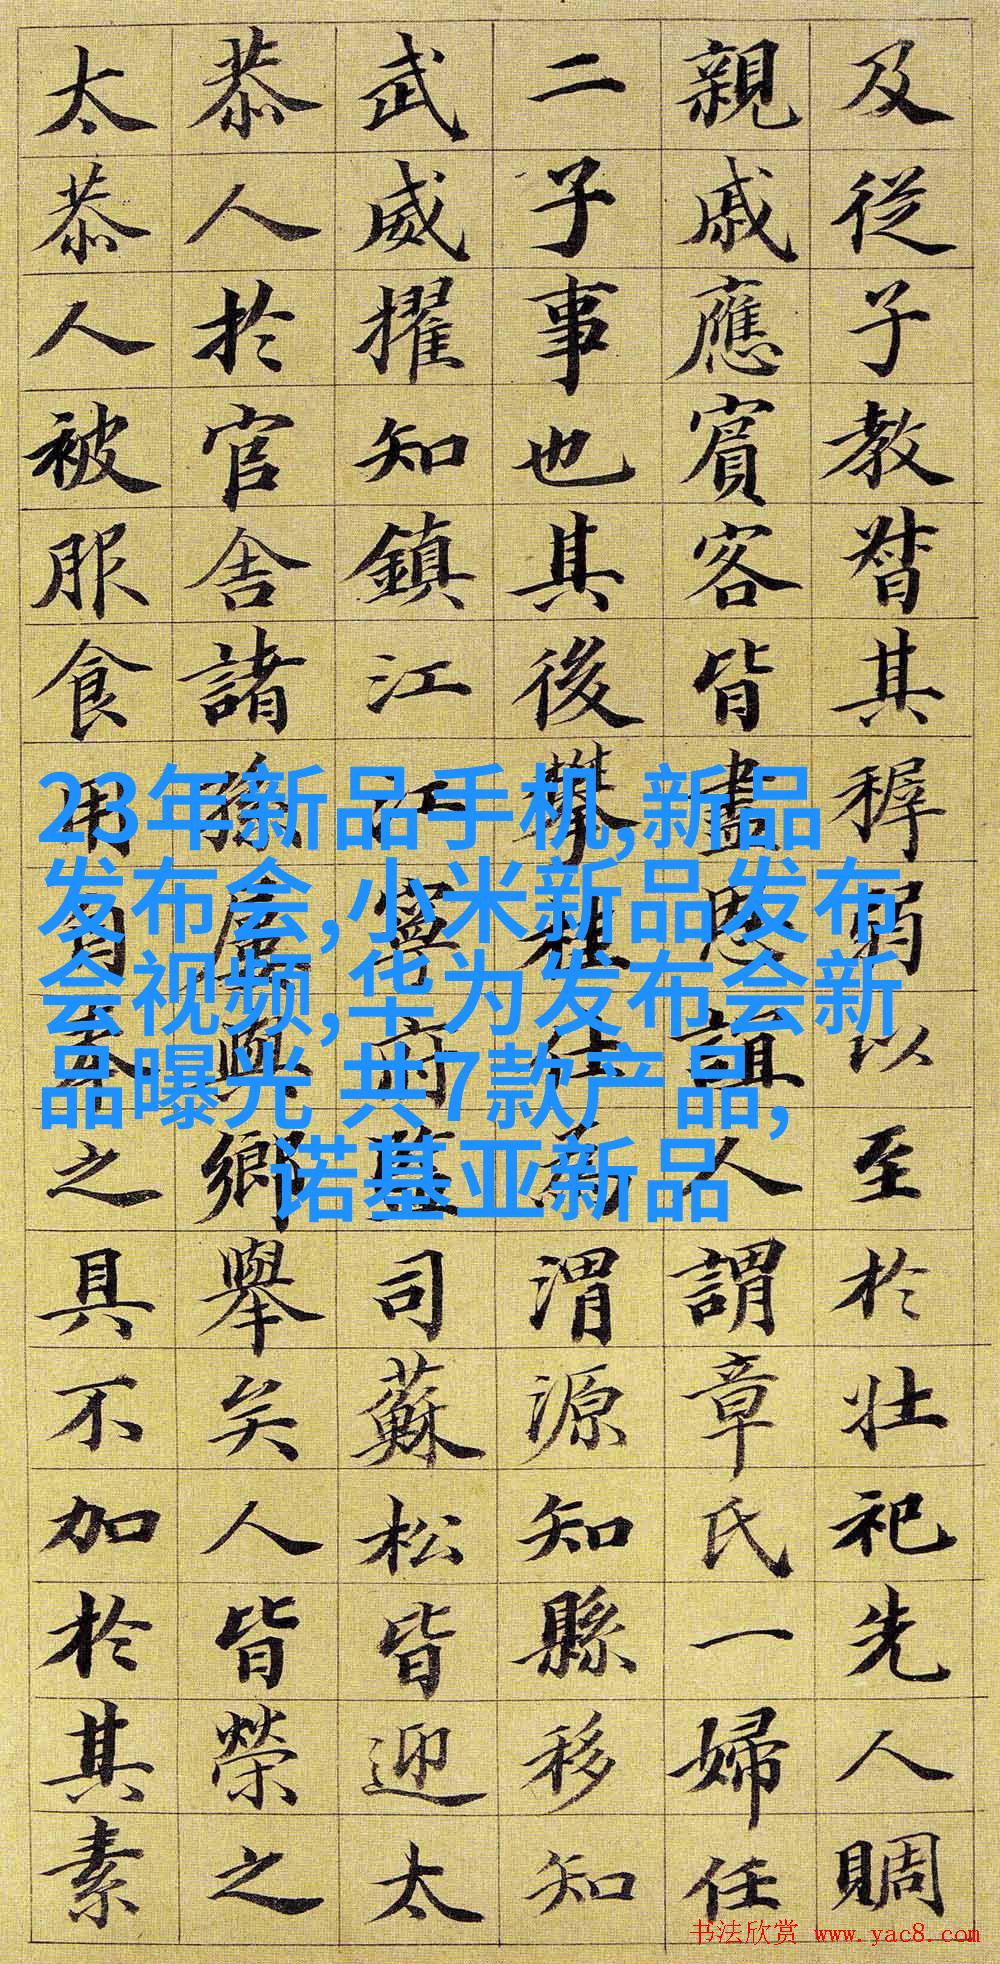 23年新品手机,新品
发布会,小米新品发布
会视频,华为发布会新
品曝光 共7款产品,
诺基亚新品
及從子教督其稺弱以至於壯祀先人賙
親戚應賓客皆盡恩誼人謂章氏一婦任
二子事也其後攀桂仕為渭源知縣移知
武威擢知鎮江江寧府監司蘇松皆迎太
恭人於官舍諸孫屢與鄉舉矣人皆榮之
太恭人被服食用自奉之具不加於其素
书法欣赏 www.yac8.com